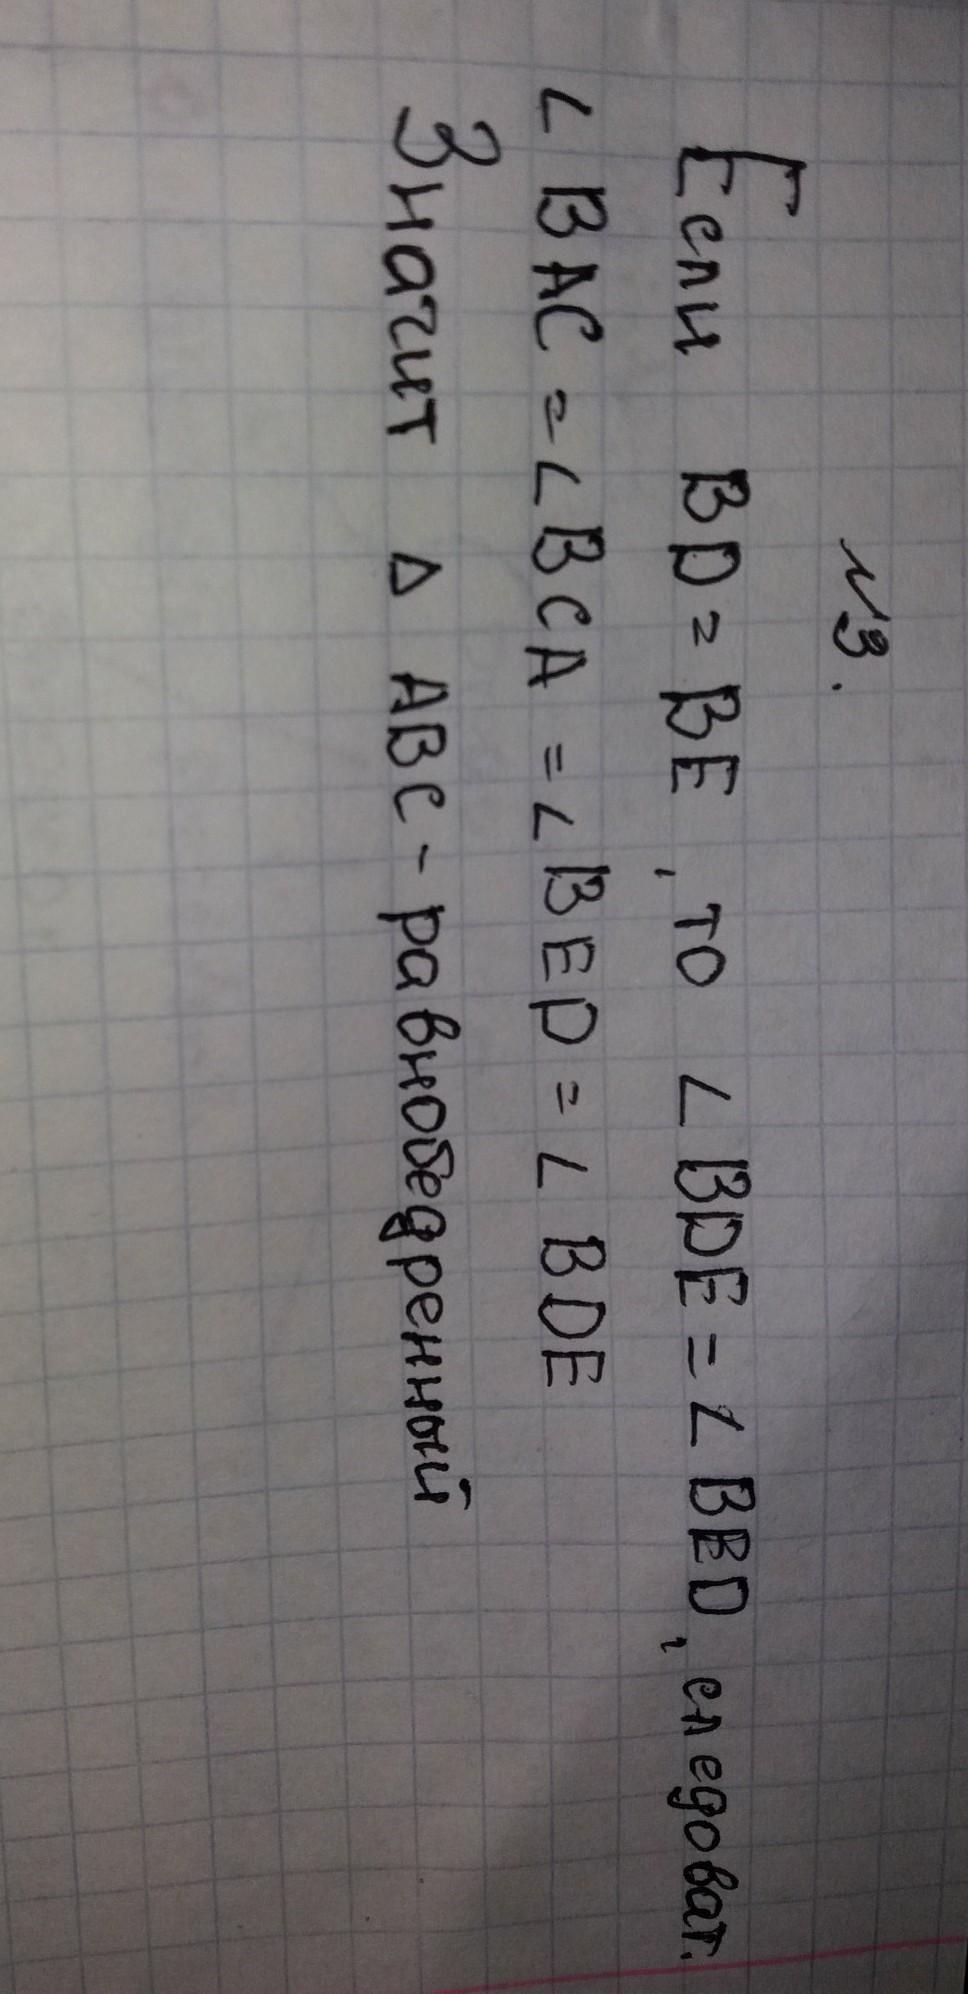 №3.
Если BD = BE, то ∠ BDE = ∠ BED, следоват.
∠ BAC = ∠ BCA = ∠ BED = ∠ BDE
Значит Δ ABC - равнобедренный